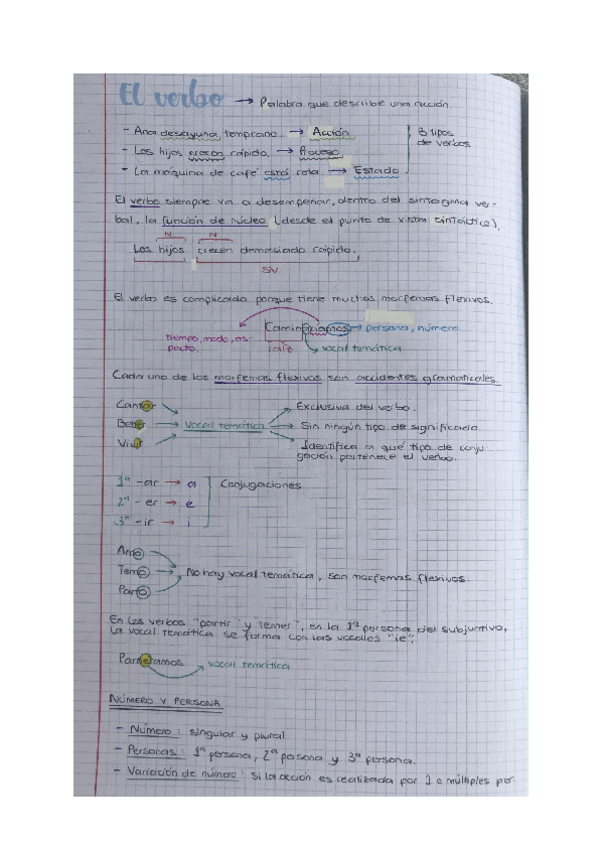 El verbo → Palabra que describe una acción.
- Ana desayuna temprano. → Acción
- Los hijos crecen rápido. → Proceso
- La máquina de café está rota. → Estado
3 tipos
de verbos
El verbo siempre va a desempeñar, dentro del sintagma ver-
bal, la función de núcleo (desde el punto de vista sintáctico).
N N
Los hijos crecen demasiado rápido.
SV
El verbo es complicado porque tiene muchos morfemas flexivos.
Caminábamos → persona, número
tiempo, modo, as-
pecto.
raíz
vocal temática
Cada uno de los morfemas flexivos son accidentes gramaticales.
Cantar
Beber
Vivir
Vocal temática
Exclusiva del verbo.
Sin ningún tipo de significado.
Identifica a qué tipo de conju
gación pertenece el verbo.
1ª -ar → a
2ª -er → e
3ª -ir → i
Conjugaciones
Amo
Temo
Parto
No hay vocal temática, son morfemas flexivos
En los verbos "partir" y "temer", en la 1ª persona del subjuntivo,
la vocal temática se forma con las vocales "ie".
Partieramos → vocal temática
NÚMERO Y PERSONA
- Número: singular y plural
- Personas: 1ª persona, 2ª persona y 3ª persona.
- Variación de número: si la acción es realizada por 1 o múltiples per-